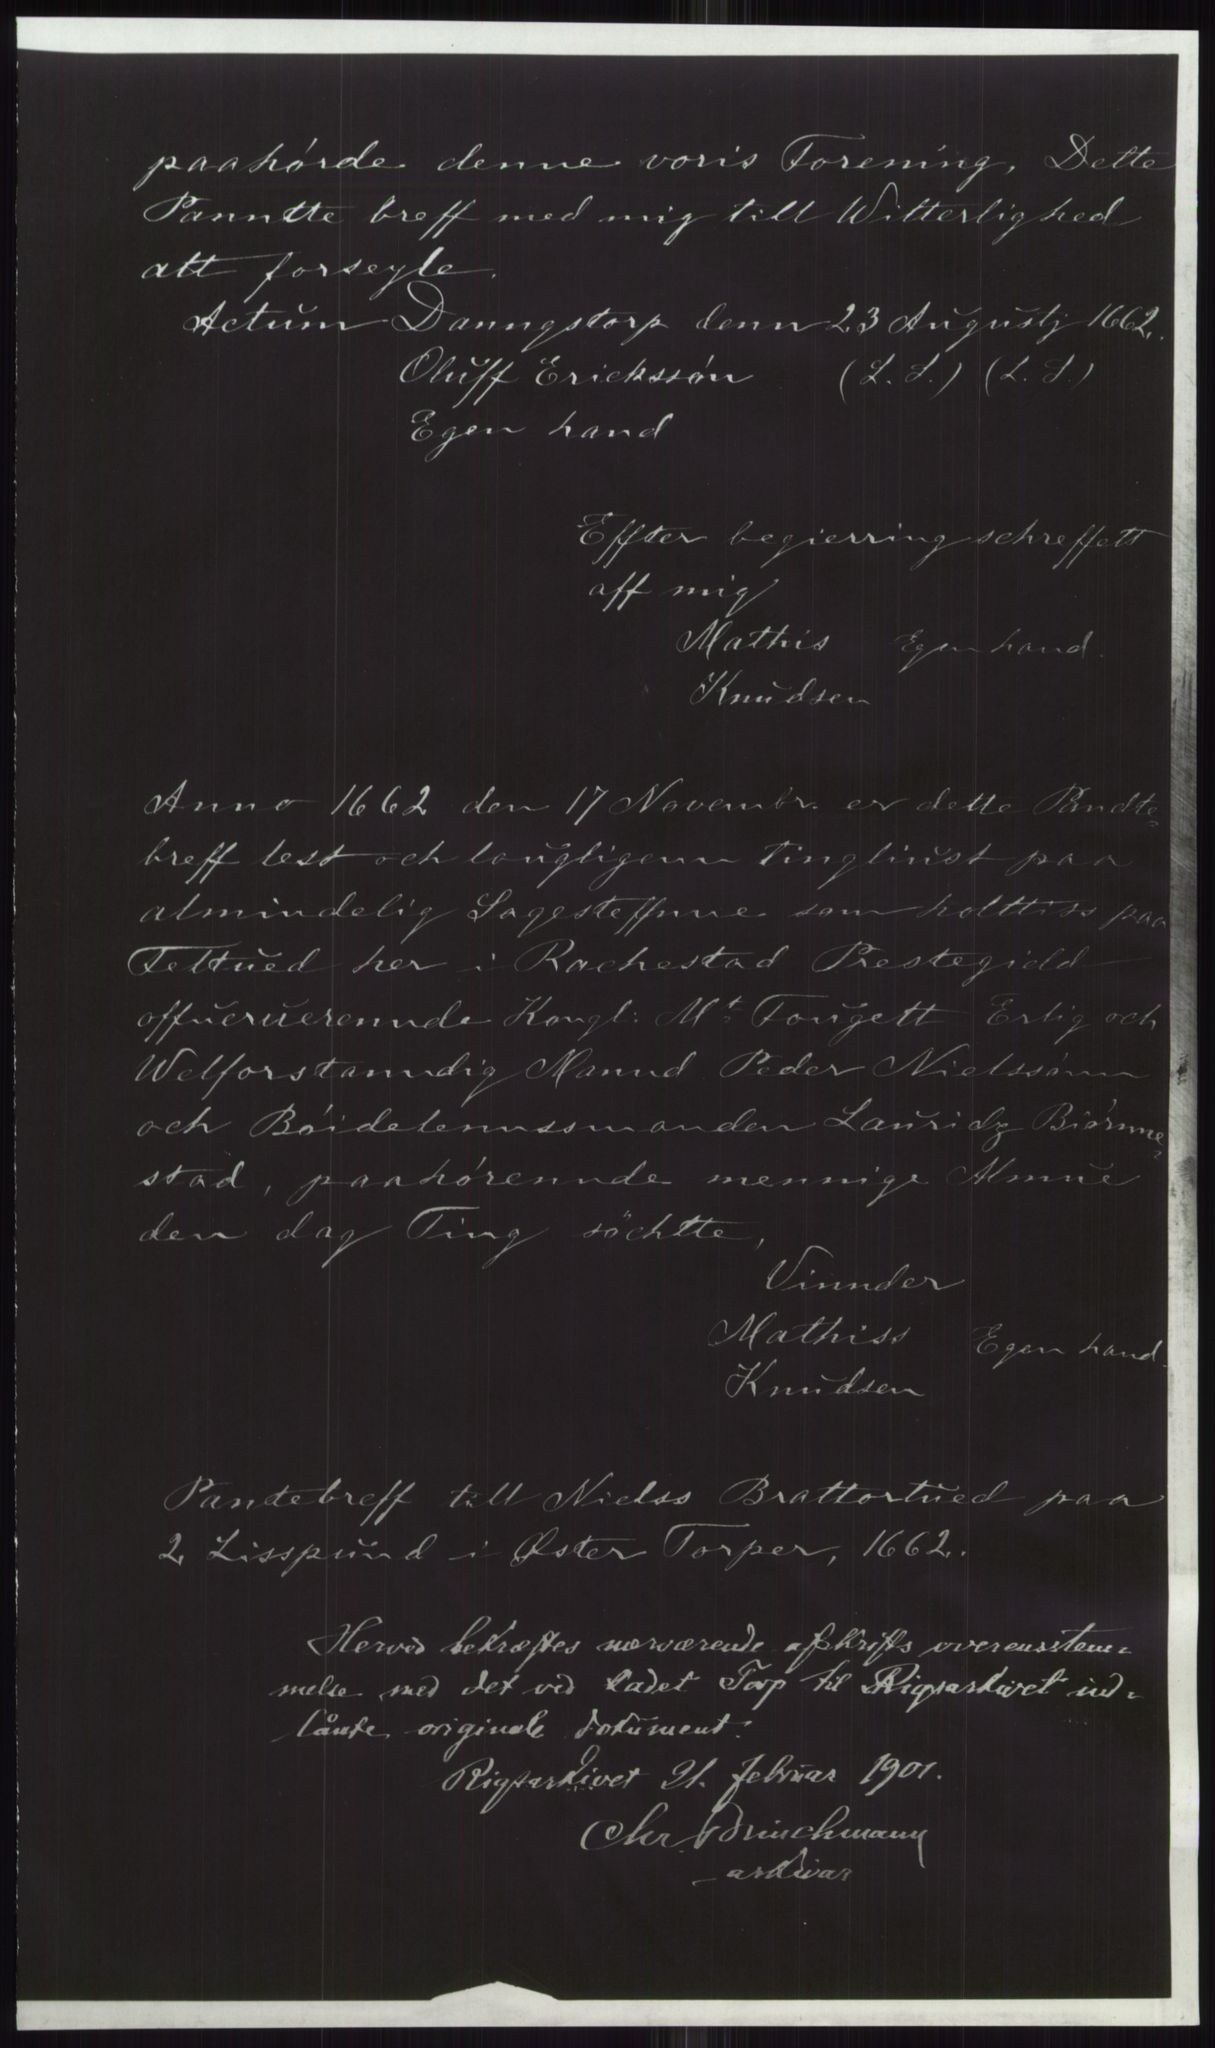 paahørde denne voris Forening. Dette
Panntte breff med mig till Witterlighed
att forseyle.
Actum Danngstorp denn 23 Augustj 1662.
Oluff Erickssøn (L. S.) (L. S.)
Egen hand
Effter begierring schreffett
aff mig
Mathis Egen hand.
Knudsen
Anno 1662 den 17 Novembr. er dette Pandte-
breff lest och lougligenn tingliust paa
almindelig Lagesteffnne som holttiss paa
Feltued her i Rachestad Prestegield
offueruerennde Kongl: Mts Fougett Erlig och
Welforstanndig Mannd Peder Nielssønn
och Bøidelennssmanden Lauridz Biørnne-
stad, paahørennde mennige Almue
den dag Ting söchtte,
Vinnder
Mathiss Egen hand.
Knudsen
Pantebreff till Nielss Brattortued paa
2 Lisspund i Øster Torper, 1662.
Herved bekræftes nærværende afskrifts overensstem-
melse med det ved Ladet Torp til Rigsarkivet ind-
lånte originale dokument.
Rigsarkivet 21. februar 1901.
Chr. Brinchmann
arkivar